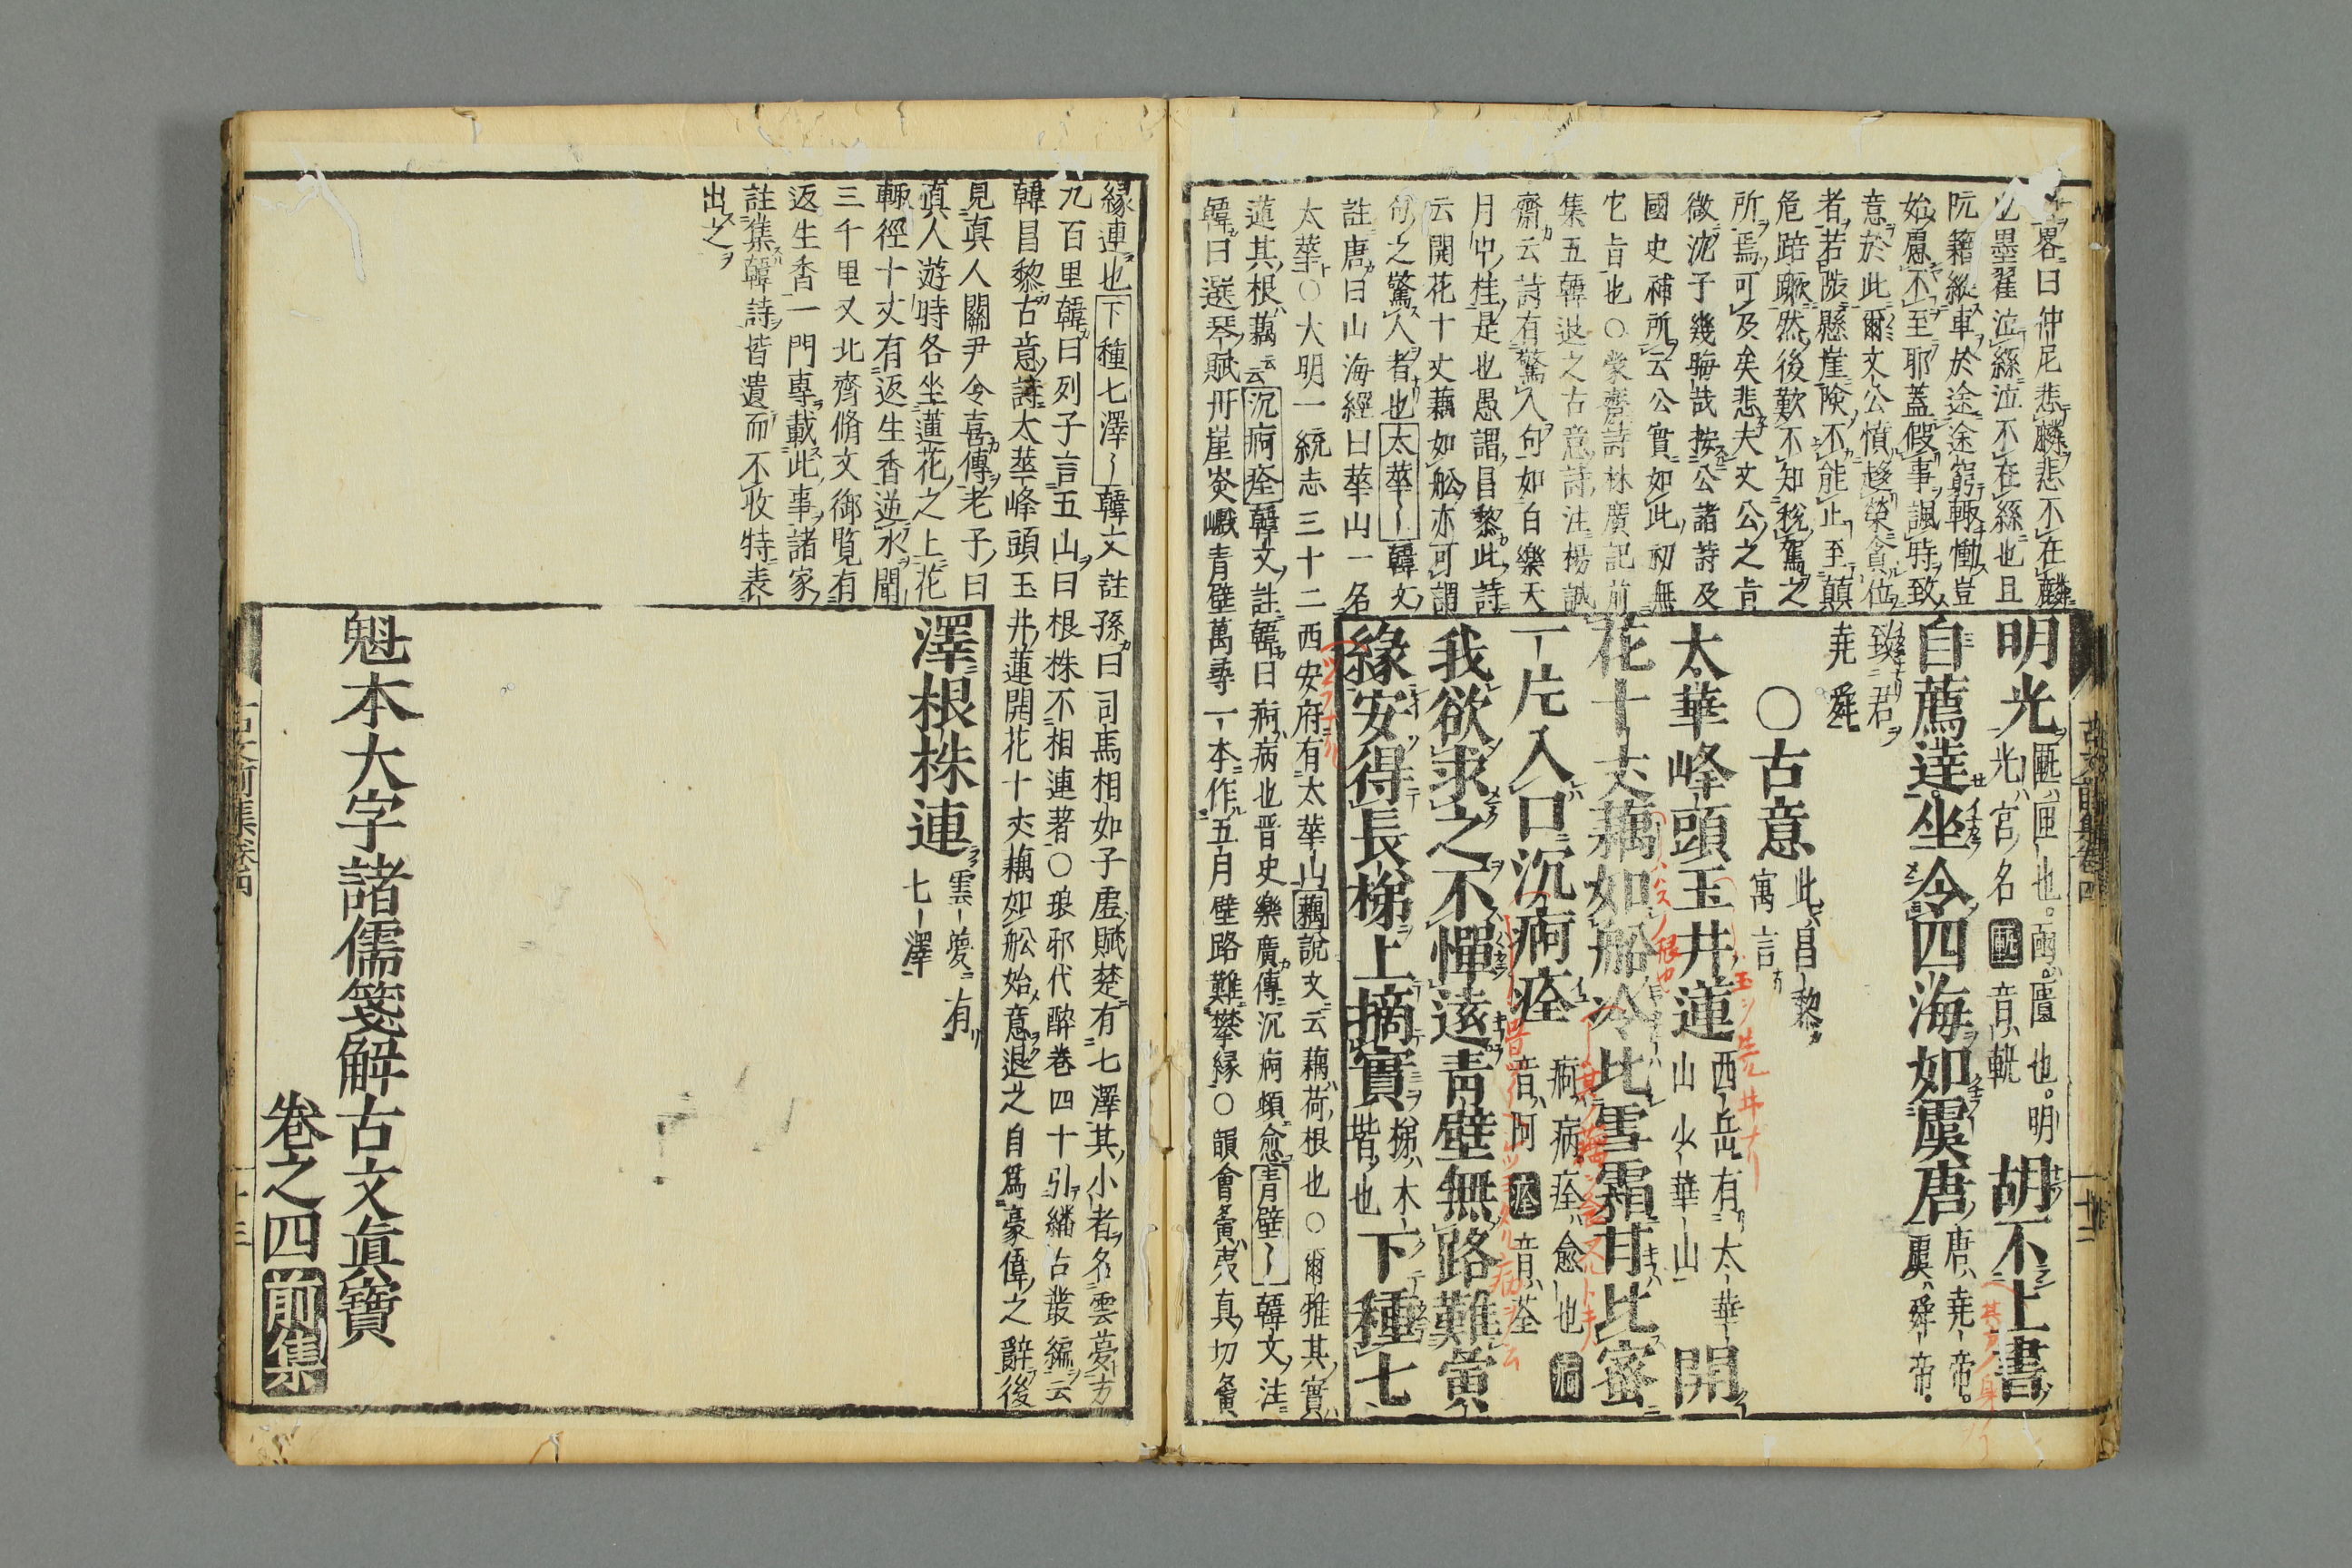 畧曰仲尼悲麟悲不在麟
也墨翟泣絲泣不在絲也且
阮籍縱車於途途窮輙慟豈
始慮不至耶蓋假事諷時致
意於此爾文公憤趍榮貪位
者若陟懸崖險不能止至顛
危踣蹶然後歎不知稅駕之
所焉可及矣悲夫文公之旨
微沈子幾晦哉按公諸詩及
國史補所云公實如此初無
它旨也○蒙齋詩林廣記前
集五韓退之古意詩注楊誠
齋云詩有驚人句如白樂天
月中桂是也愚謂昌黎此詩
云開花十丈藕如舩亦可謂
句之驚人者也太華〻韓文
註唐曰山海經曰華山一名
太華○大明一統志三十二西安府有太華山藕說文云藕荷根也○爾雅其實
蓮其根藕云云沉痾痊韓文註韓曰痾病也晋史樂廣傳沉痾頓愈青壁〻韓文注
韓曰選琴賦丹崖嶮巇青壁萬尋一本作五月壁路難攀緣○韻會夤夷真切夤
明光匭匣也函匱也明
光宮名匭音軌胡不上書
自薦達坐令四海如虞唐唐堯帝
虞舜帝
致君
堯舜
○古意此昌黎
寓言
太華峰頭玉井蓮西岳有太華
山少華山開
花十丈藕如船冷比雪霜甘比蜜
一片入口沉痾痊痾病痊愈也痾
音阿痊音荃
我欲求之不憚遠青壁無路難夤
緣安得長梯上摘實梯木
堦也下種七
古文前集卷四
十二
緣連也下種七澤〻韓文註孫曰司馬相如子虛賦楚有七澤其小者名雲夢方
九百里韓曰列子言五山曰根株不相連著○琅邪代醉卷四十引繙古叢編云
韓昌黎古意詩太華峰頭玉井蓮開花十丈藕如舩始意退之自爲豪偉之辭後
見真人關尹令喜傳老子曰
真人遊時各坐蓮花之上花
輙徑十丈有返生香逆水聞
三千里又北齊脩文御覧有
返生香一門專載此事諸家
註集韓詩皆遺而不收特表
出之
澤根株連雲夢有
七澤
魁本大字諸儒箋解古文真寶
卷之四前集
十三